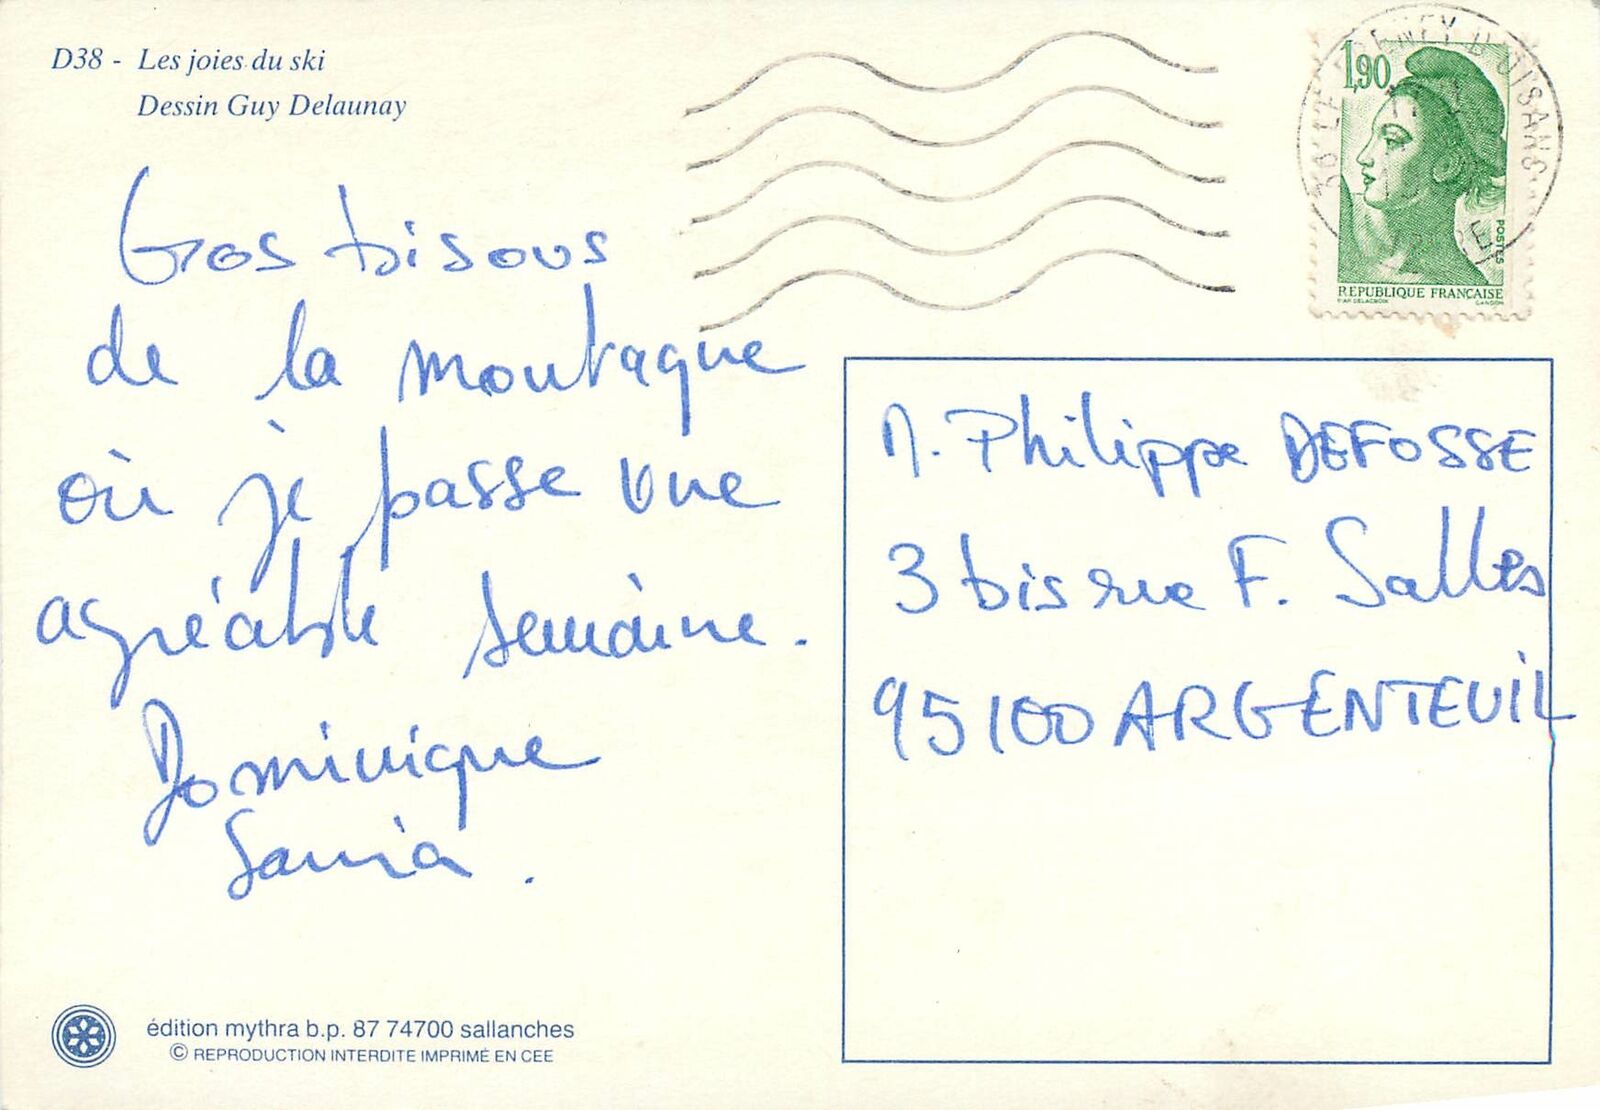 D38 - Les joies du ski
Dessin Guy Delaunay
Gros bisous
de la montagne
où je passe une
agréable semaine.
Dominique
Sania.
1,90
POSTES
REPUBLIQUE FRANÇAISE
D'AP. DELACROIX GANDON
D'OISANS
M. Philippe DEFOSSE
3 bis rue F. Salles
95100 ARGENTEUIL
édition mythra b.p. 87 74700 sallanches
© REPRODUCTION INTERDITE IMPRIMÉ EN CEE